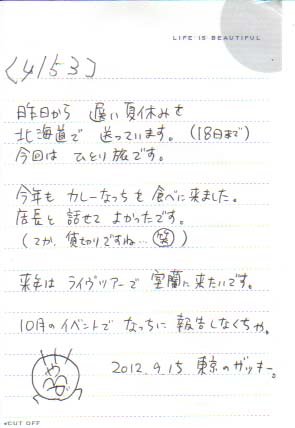 LIFE IS BEAUTIFUL
〈4153〉
昨日から 遅い夏休みを
北海道で 送っています。(18日まで)
今回は ひとり旅です。
今年も カレーなっちを 食べに来ました。
店長と 話せて よかったです。
(てか、貸切りですね…笑)
来年は ライヴツアーで 室蘭に来たいです。
10月のイベントで なっちに 報告しなくちゃ。
2012.9.15 東京のザッキー。
◂CUT OFF